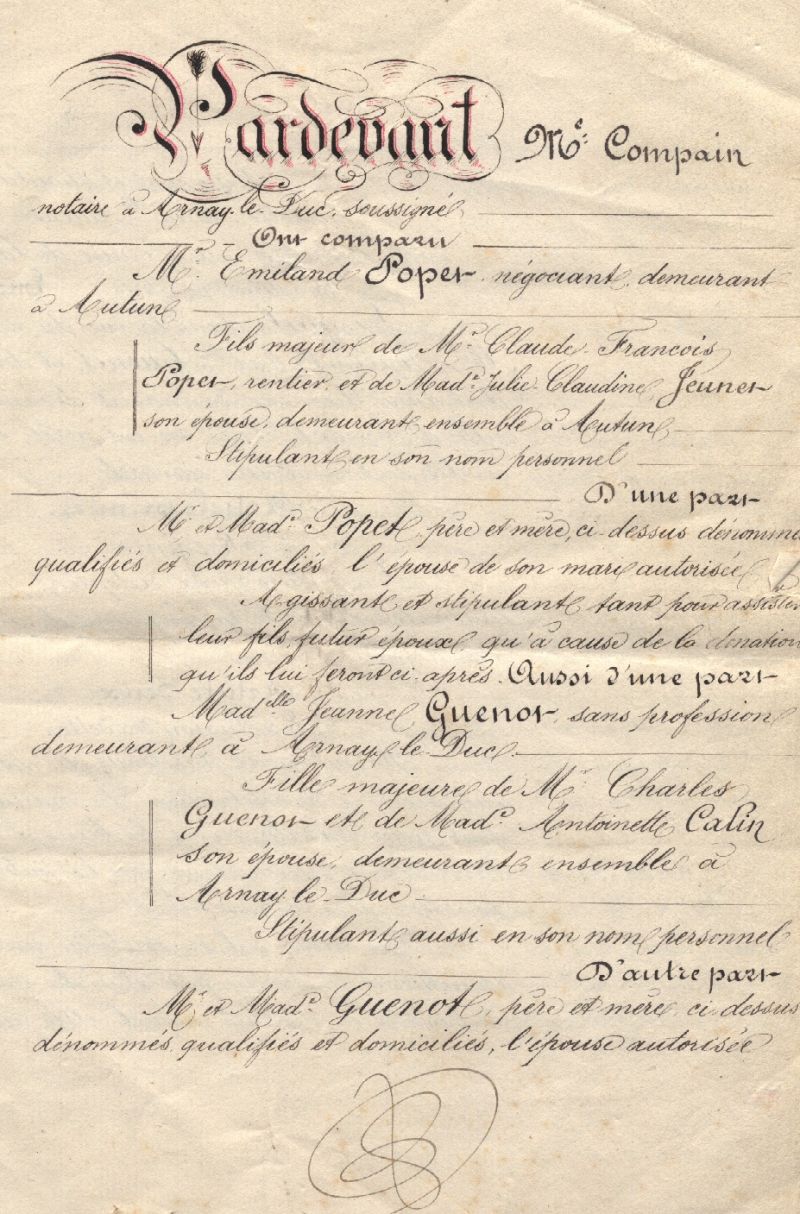 Pardevant Me. Compain
notaire à Arnay-le-Duc, soussigné,
Ont comparu
Mr. Emiland Popet, négociant, demeurant
à Autun
Fils majeur de Mr. Claude-Francois
Popet, rentier, et de Made. Julie-Claudine Jeunet
son épouse, demeurant ensemble à Autun,
Stipulant en son nom personnel
D'une part
Mr. et Made. Popet, père et mère, ci-dessus dénommé
qualifiés et domiciliés, l'épouse de son mari autorisée
Agissant et stipulant tant pour assister
leur fils, futur époux, qu'à cause de la donation
qu'ils lui feront ci-après. Aussi d'une part
Madelle. Jeanne Guenot, sans profession
demeurant à Arnay-le-Duc.
Fille majeure de Mr. Charles
Guenot et de Made. Antoinette Calin
son épouse, demeurant ensemble à
Arnay-le-Duc.
Stipulant aussi en son nom personnel
D'autre part
Mr. et Made. Guenot, père et mère, ci-dessus
dénommés, qualifiés et domiciliés, l'épouse autorisée